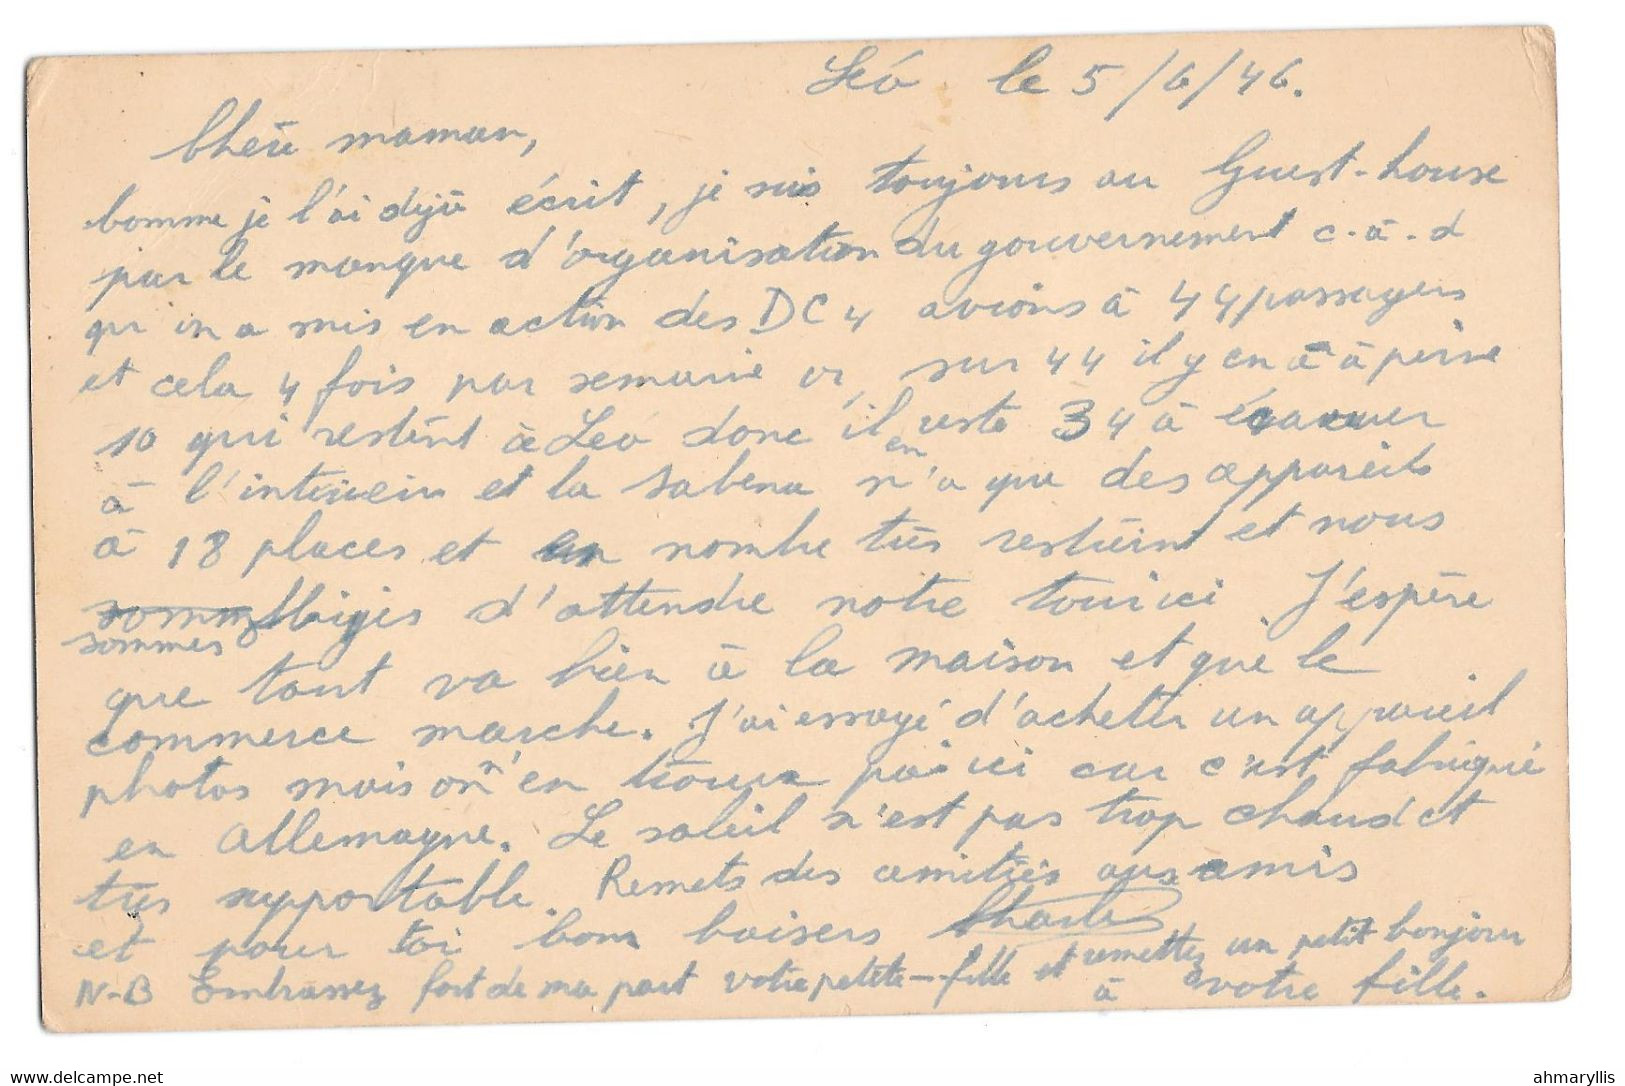 Léo le 5/6/46.
Chère maman,
Comme je l'ai déjà écrit, je suis toujours au Guest-house
par le manque d'organisation du gouvernement c.-à-d
qu'on a mis en action des DC4 avions à 44 passagers
et cela 4 fois par semaine or, sur 44 il y en a à peine
10 qui restent à Léo donc il en reste 34 à évacuer
à l'intérieur et la Sabena n'a que des appareils
à 18 places et en nombre très restreint et nous
sommes obligés d'attendre notre tour ici J'espère
que tout va bien à la maison et que le
commerce marche. J'ai essayé d'acheter un appareil
photos mais on n'en trouve pas ici car c'est fabriqué
en Allemagne. Le soleil n'est pas trop chaud et
très supportable. Remets des amitiés aux amis
et pour toi bons baisers Charles
N-B Embrassez fort de ma part votre petite-fille et remettez un petit bonjour
à votre fille.
delcampe.net
ahmaryllis